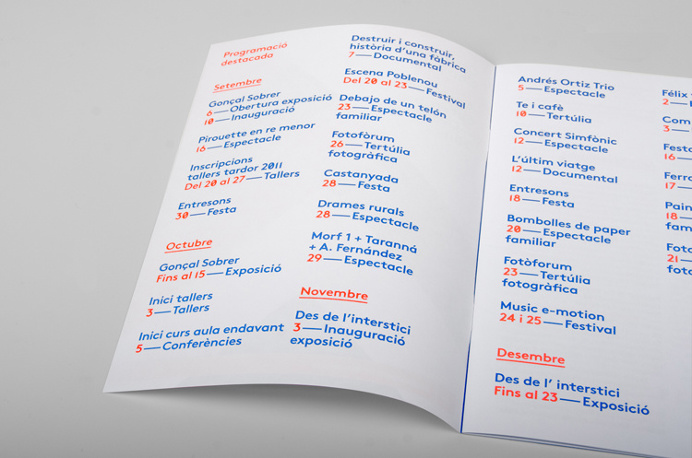 Programació
destacada
Setembre
Gonçal Sobrer
6—Obertura exposició
10—Inauguració
Pirouette en re menor
16—Espectacle
Inscripcions
tallers tardor 2011
Del 20 al 27—Tallers
Entresons
30—Festa
Octubre
Gonçal Sobrer
Fins al 15—Exposició
Inici tallers
3—Tallers
Inici curs aula endavant
5—Conferències
Destruir i construir,
història d'una fàbrica
7—Documental
Escena Poblenou
Del 20 al 23—Festival
Debajo de un telón
23—Espectacle
familiar
Fotofòrum
26—Tertúlia
fotogràfica
Castanyada
28—Festa
Drames rurals
28—Espectacle
Morf 1 + Taranná
+ A. Fernández
29—Espectacle
Novembre
Des de l'interstici
3—Inauguració
exposició
Andrés Ortiz Trio
5—Espectacle
Te i cafè
10—Tertúlia
Concert Simfònic
12—Espectacle
L'últim viatge
12—Documental
Entresons
18—Festa
Bombolles de paper
20—Espectacle
familiar
Fotòforum
23—Tertúlia
fotogràfica
Music e-motion
24 i 25—Festival
Desembre
Des de l' interstici
Fins al 23—Exposició
Fèlix
2—
3—
16—
17—
18—
21—